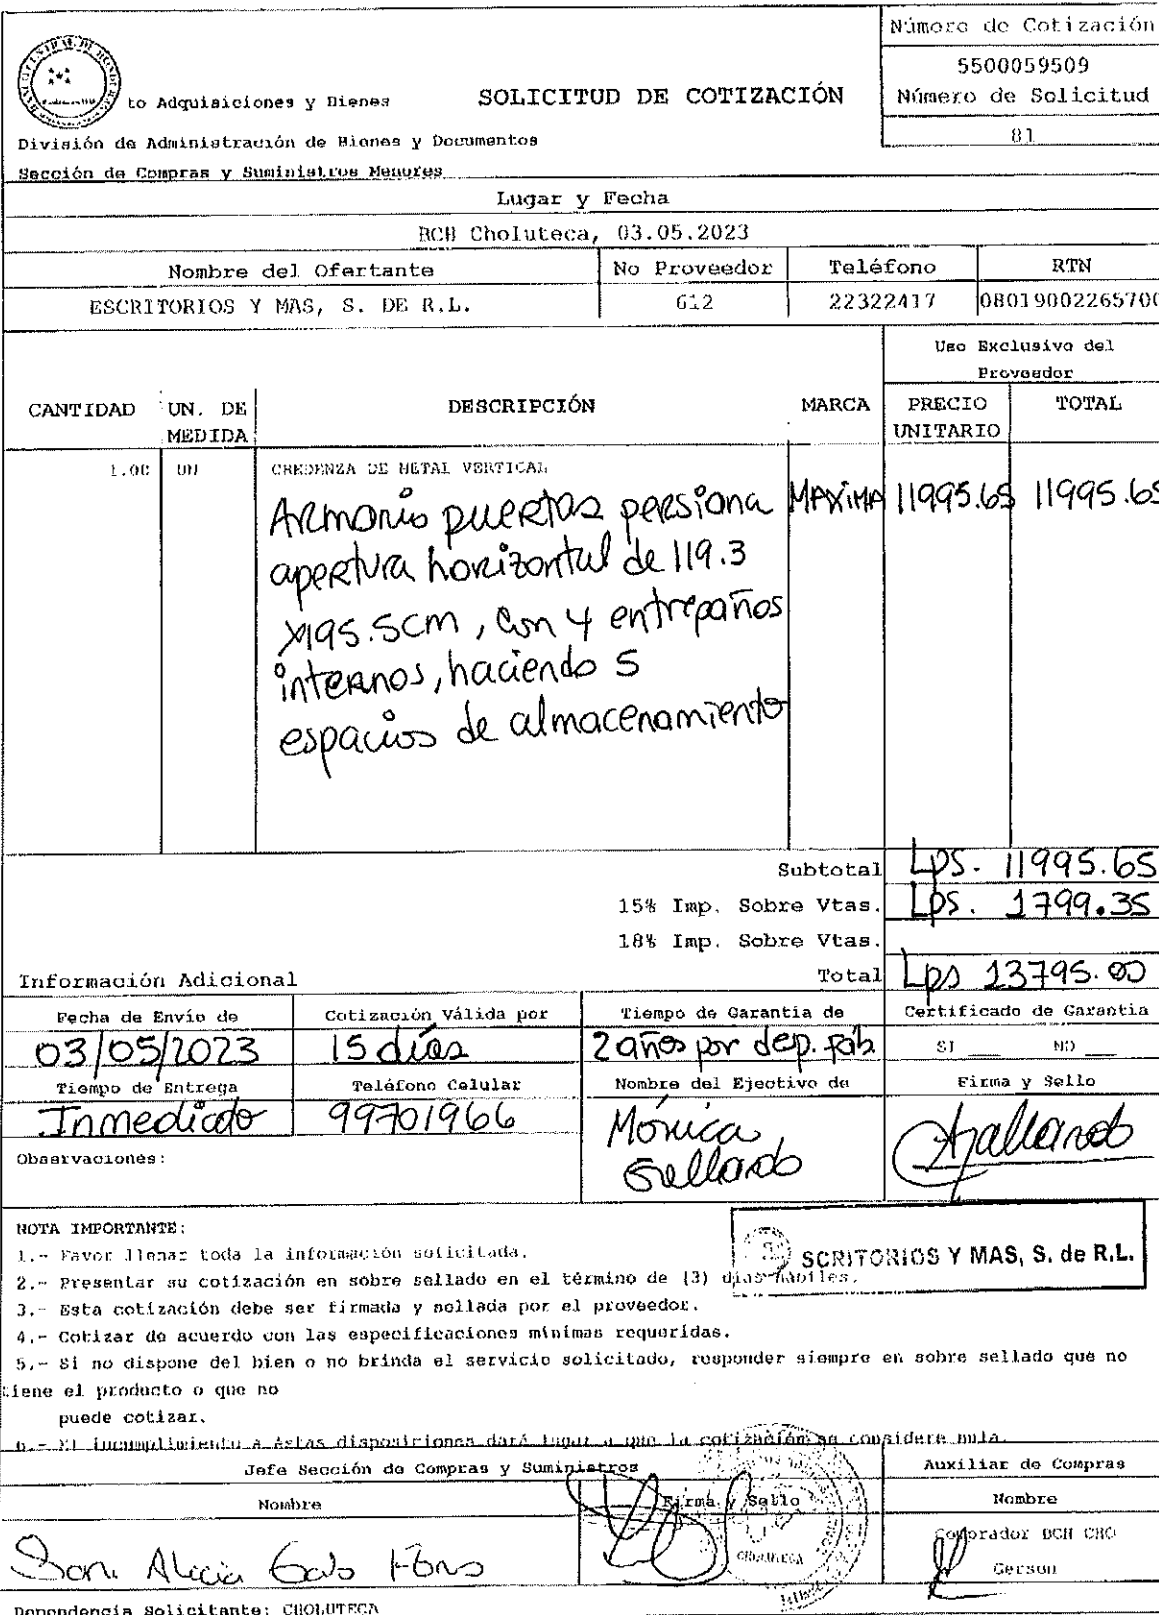 Número de Cotización
5500059509
to Adquisiciones y Bienes
SOLICITUD DE COTIZACIÓN
Número de Solicitud
81
División de Administración de Bienes y Documentos
Sección de Compras y Suministros Menores
Lugar y Fecha
BCH Choluteca, 03.05.2023
Nombre del Ofertante No Proveedor Teléfono RTN
ESCRITORIOS Y MAS, S. DE R.L. 612 22322417 08019002265700
Uso Exclusivo del
Proveedor
CANTIDAD UN. DE DESCRIPCIÓN MARCA PRECIO TOTAL
MEDIDA UNITARIO
1.00 UN CREDENZA DE METAL VERTICAL
Armonio puertas persiana MAXIMA 11995.65 11995.65
apertura horizontal de 119.3
X195.5cm, con 4 entrepaños
internos, haciendo 5
espacios de almacenamiento
Subtotal Lps. 11995.65
15% Imp. Sobre Vtas. Lps. 1799.35
18% Imp. Sobre Vtas.
Información Adicional Total Lps 13795.00
Fecha de Envío de Cotización Válida por Tiempo de Garantía de Certificado de Garantía
03/05/2023 15 días 2 años por dep. fáb. SI ___ NO ___
Tiempo de Entrega Teléfono Celular Nombre del Ejectivo de Firma y Sello
Inmediato 99701966 Mónica Gallardo
Observaciones:
NOTA IMPORTANTE:
1.- Favor llenar toda la información solicitada.
SCRITORIOS Y MAS, S. de R.L.
2.- Presentar su cotización en sobre sellado en el término de (3) días hábiles.
3.- Esta cotización debe ser firmada y sellada por el proveedor.
4.- Cotizar de acuerdo con las especificaciones mínimas requeridas.
5.- Si no dispone del bien o no brinda el servicio solicitado, responder siempre en sobre sellado que no
tiene el producto o que no
puede cotizar.
6.- El incumplimiento a éstas disposiciones dará lugar a que la cotización se considere nula.
Jefe Sección de Compras y Suministros Auxiliar de Compras
Nombre Firma y Sello Nombre
Comprador BCH CHO
Alecia
CHOLUTECA
Gerson
Dependencia Solicitante: CHOLUTECA